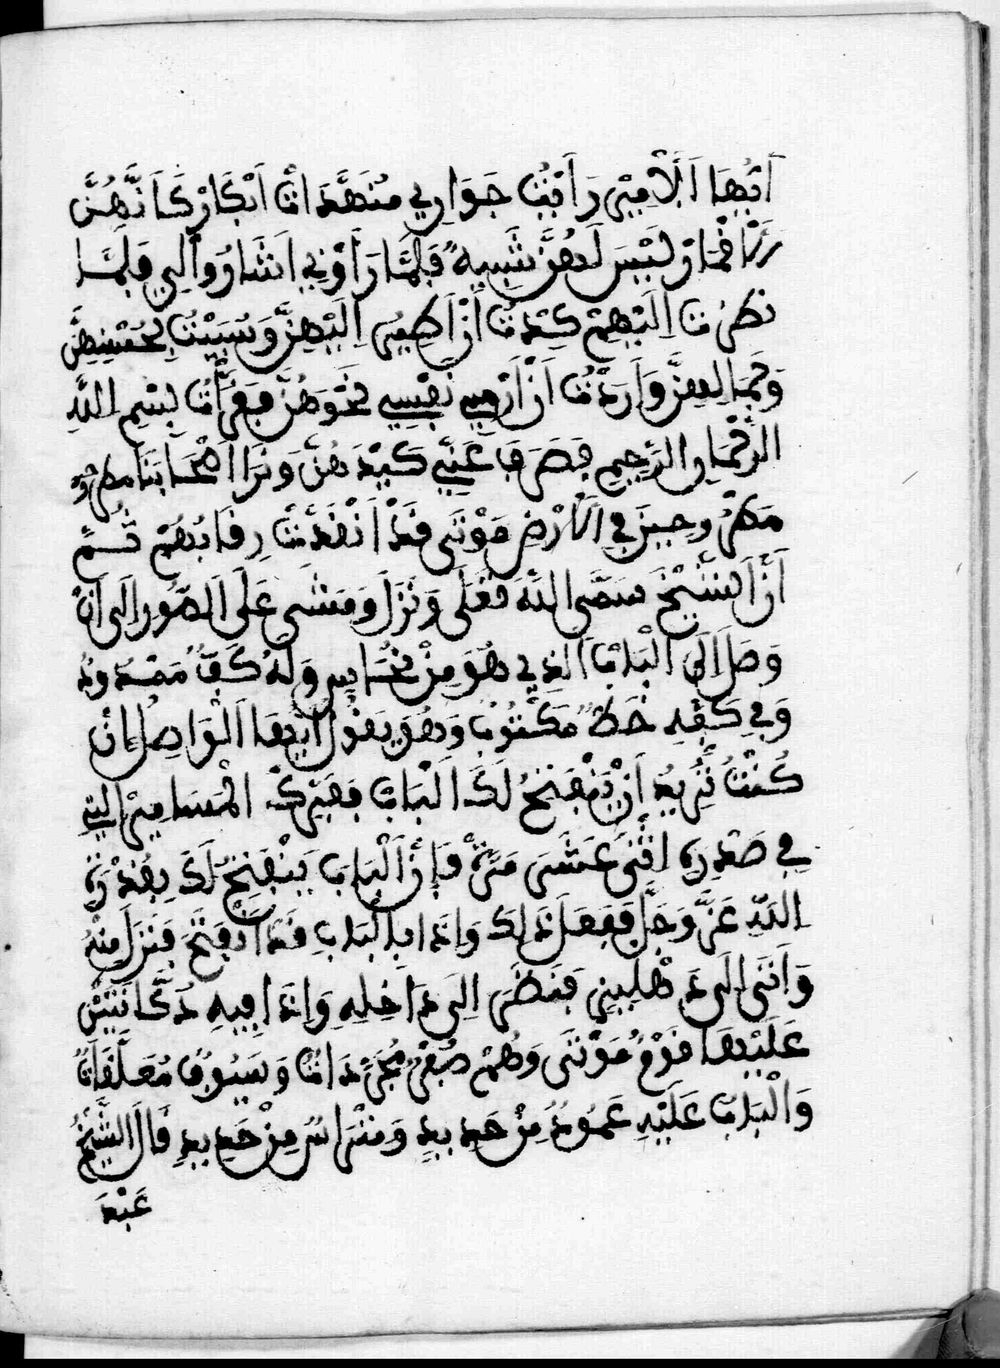 أَيُّهَا اَلَامِيرُ رَأَيْتُ جَوَارِي مُنَهَّدَاتٌ اَبْكَارْ كَاَنَّهُنَّ
اَقْمَارْ لَيْسَ لَهُنَّ شَبِيهٌ فَلَمَّا رَأَوْنِي اَشَارُوا اِلَي فَلَمَّا
نَظَرْتُ اِلَيْهِمْ كِدْتُ أَنْ اَطِيرَ اِلَيْهِنَّ وَسُبِيْتُ بِحُسْنِهِنَّ
وَجَمَالِهِنَّ وَاَرَدْتُ أَنْ اَرْمِي نَفْسِي نَحْوَهُنَّ فَقَرَأْتُ بِسْمِ اللَّهِ
الرَّحْمَانِ الرَّحِيمِ فَصَرَفَ عَنِّي كَيْدَهُنَّ وَنَرَا اَصْحَابَنَا مَطْرُو
مَطْرُوحِينَ فِي اَلْاَرْضِ مَوْتَى فَدْ اَنْفَدَتْ رِقَابُهُمْ ثُمَّ
أَنَّ الشَّيْخَ سَمَّى اللَّهَ تَعَلَى وَنَزَلَ وَمَشَى عَلَى اَلصُّورِ اِلَى اَنْ
وَصَلَ اِلَى الْبَابِ اَلذِي هُوَ مِنْ نُحَاسٍ وَلَهُ كَفٌّ مَمْدُودٌ
وَفِي كَفِّهِ خَطٌّ مَكْتُوبٌ وَهُوَ يَقُولُ اَيُّهَا اَلْوَاصِلُ اِنْ
كُنْتَ تُرِيدُ اَنْ يَنْفَتِحُ لَكَ اَلْبَابُ فَفَرِّكْ الْمَسَامِيرَ اَلتِي
فِي صَدْرِهِ اِثْنَى عَشَرَ مَرَّةً فَإِنَّ اَلْبَابَ يَنْفَتِحُ لَكَ بِقُدْرَةِ
اللَّهِ عَزَّ وَجَلَّ فَفَعَلَ ذَلِكَ وَاِذَا بِالْبَابِ فَدْ اَنْفَتَحَ فَنَزَلَ مِنْهُ
وَاَتَى اِلَى دَهْلِيزٍ فَنَظَرَ اِلَى دَاخِلِهِ وَاِذَا فِيهِ دُكَّانَتَيْنِ
عَلَيْهَا قَوْمٌ مَوْتَى وَهُمْ صُفْرٌ مُجَرَّدَاتٌ وَسُيُوفٌ مُعَلَّقَاتٌ
وَالْبَابُ عَلَيْهِ عَمُودٌ مِنْ حَدِيدٍ وَمَتْرَاسُ مِنْ حَدِيدٍ قَالَ الشَّيْخُ
عَبْدَ